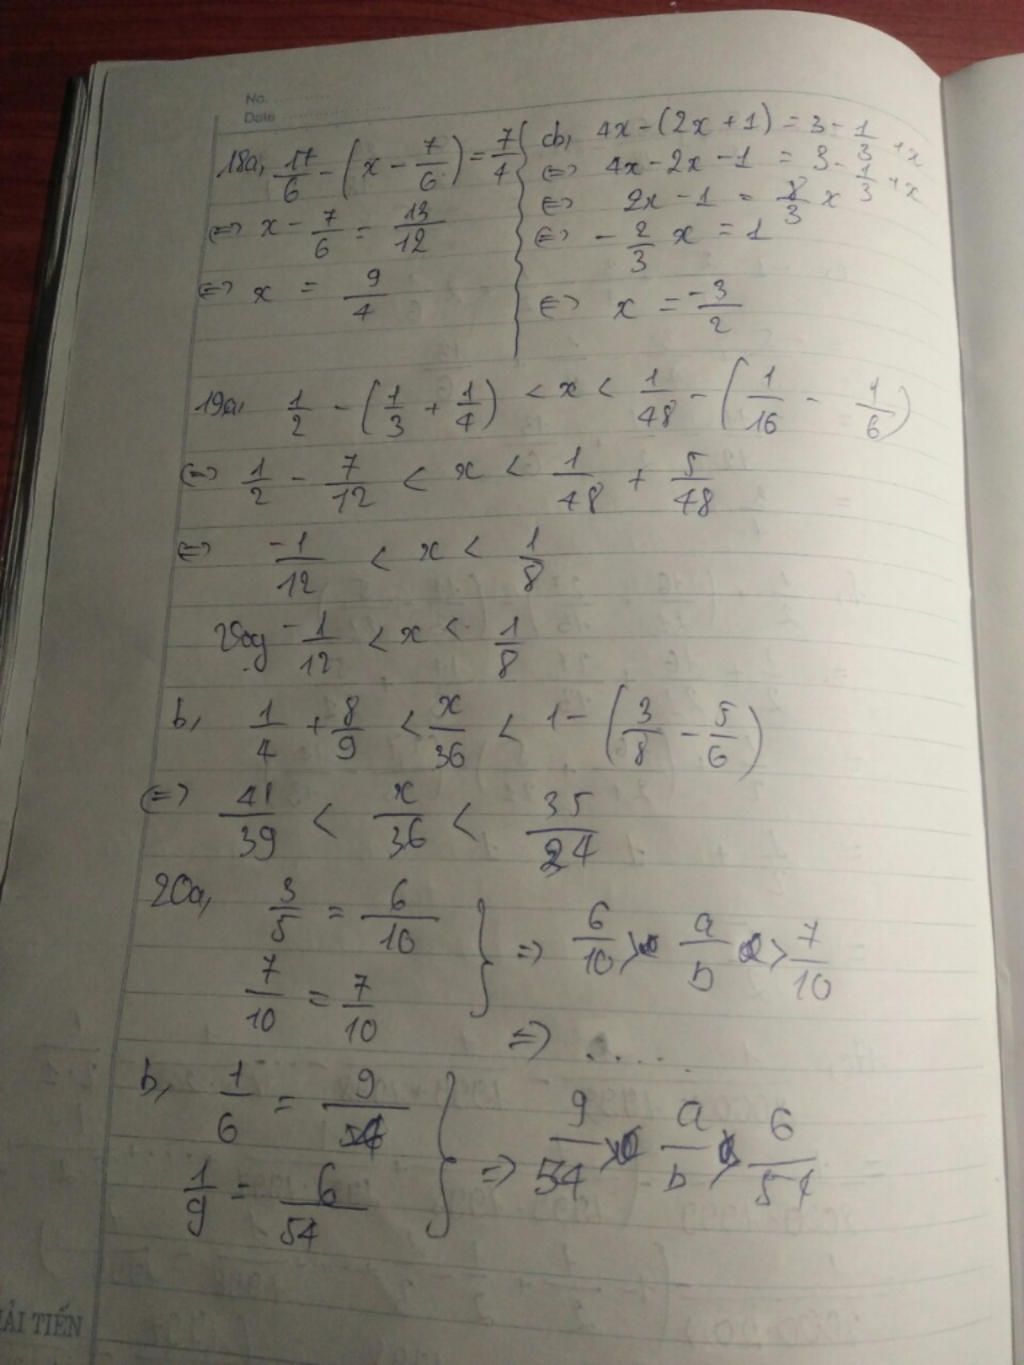 No.
Date
18a, 17/6 - (x - 7/6) = 7/4
<=> x - 7/6 = 13/12
<=> x = 9/4
b, 4x - (2x + 1) = 3 - 1/3 + x
<=> 4x - 2x - 1 = 3 - 1/3 + x
<=> 2x - 1 = 8/3 x
<=> -2/3 x = 1
<=> x = -3/2
19a, 1/2 - (1/3 + 1/4) < x < 1/48 - (1/16 - 1/6)
<=> 1/2 - 7/12 < x < 1/48 + 5/48
<=> -1/12 < x < 1/8
Vậy -1/12 < x < 1/8
b, 1/4 + 8/9 < x/36 < 1 - (3/8 - 5/6)
<=> 41/39 < x/36 < 35/24
20a, 3/5 = 6/10
7/10 = 7/10
} => 6/10 > a/b > 7/10
=> ....
b, 1/6 = 9/54
1/9 = 6/54
} => 9/54 > a/b > 6/54
ẢI TIẾN